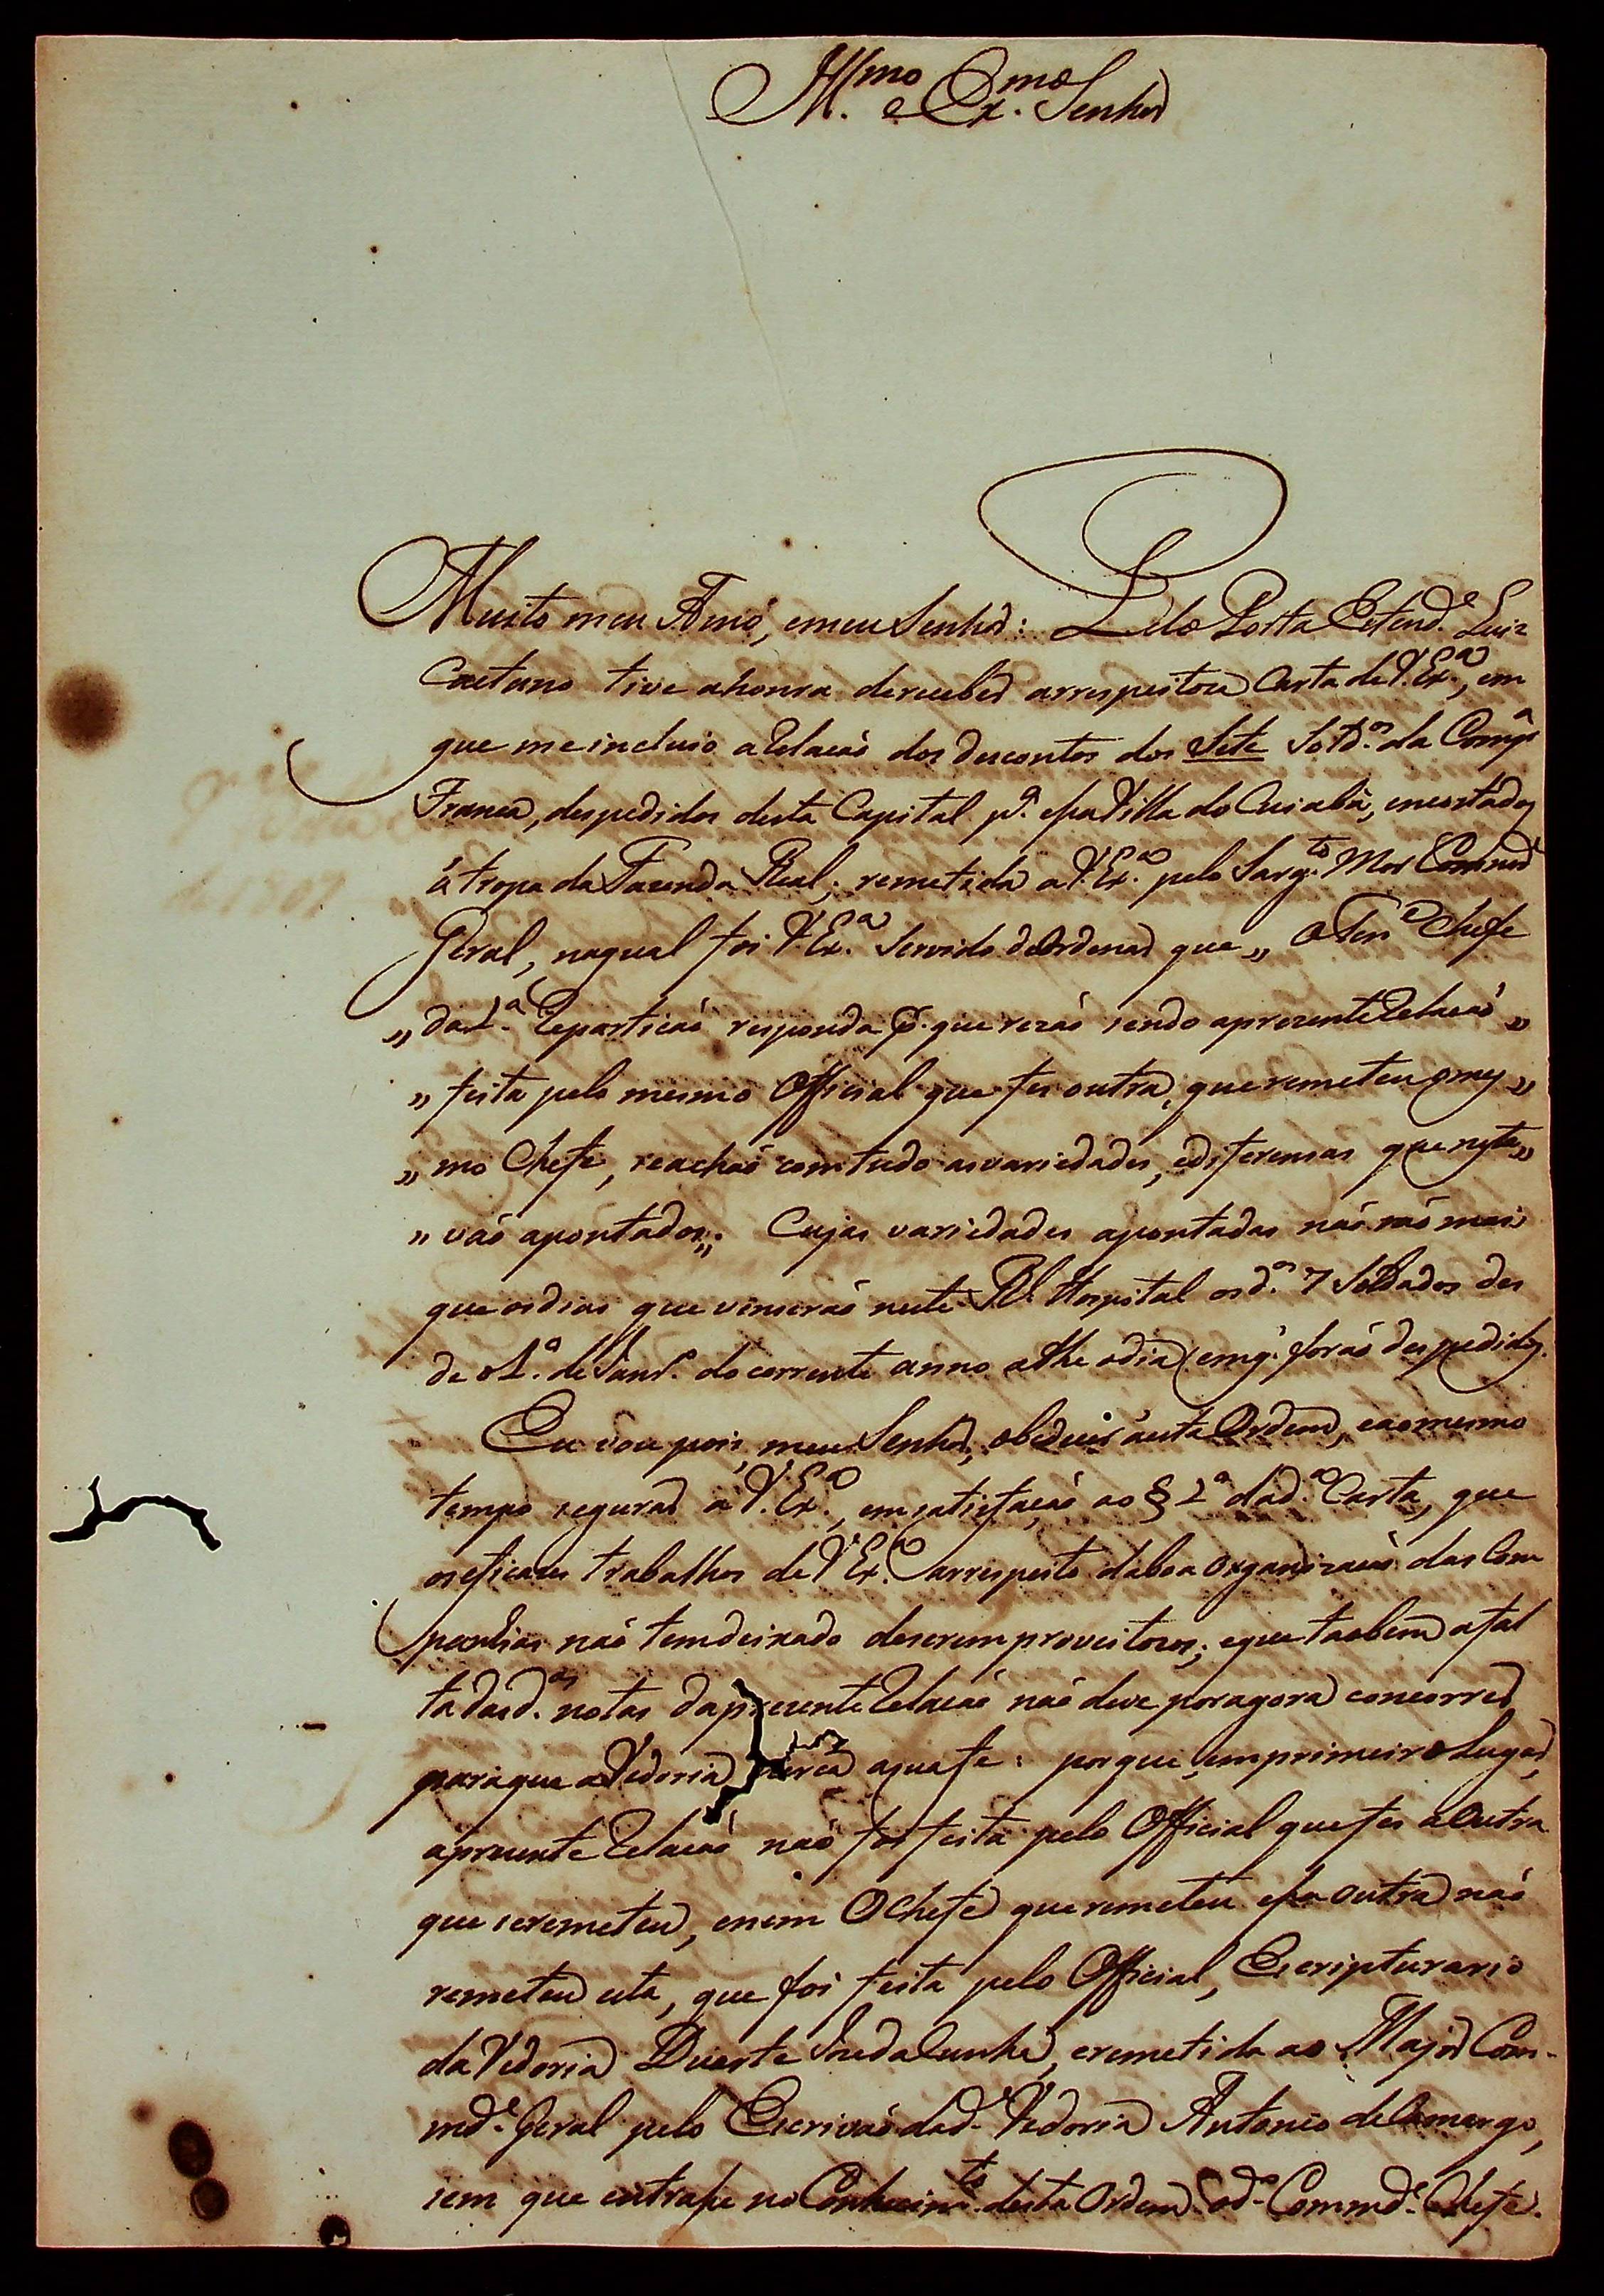 Ill.mo e Ex.mo Senhor
Muito meu Amo, emeu Senhor: Pelo Porta Estend.e Luiz
Caetano tive ahonra dereceber arrespeitoza Carta de V. Ex.a, em
que me incluio aRelaçaõ dos descontos dos Sete Sold.os da Comp.a
Franca, despedidos desta Capital p.a essa Villa do Cuiabá, encostados
á tropa da Fazenda Real; remetida a V. Ex.a pelo Sarg.to Mor Command.e
Geral, naqual foi V. Ex.a Servido deOrdenar que „ O Ten.e Chefe
„ da 1.a Repartiçaõ responda p. que rezaõ sendo aprezente Relaçaõ „
„ feita pelo mesmo Official que fes outra, que remeteu omes „
„ mo Chefe, seachaõ comtudo asvariedades, ediferensas que nesta „
„ vaõ apontados„. Cujas variedades apontadas naõ saõ mais
que osdias que venceraõ neste R.l Hospital osd.os 7 Soldados des
de o 1.o de Janr.o do corrente anno athe odia emq' foraõ despedidos.
Eu vou pois, meu Senhor, obedecer áesta Ordem, eaomesmo
tempo segurar a V. Ex.a, em satisfaçaõ ao § 2.o dad.a Carta, que
oseficazes trabalhos de V. Ex.a arrespeito daboa organizacaõ das Com
panhias naõ temdeixado deserem proveitozos; eque taobem afal
ta dasd.as notas daprezente Relacaõ naõ deve poragora concorrer
paraque aVedoria perca asuafe: porque, emprimeiro Lugar,
aprezente Relacaõ naõ foi feita pelo Official que fes aOutra
que seremeteu, enem OChefe que remeteu essa outra naõ
remeteu esta, que foi feita pelo Official, Escripturario
da Vedoria Duarte Joze da Cunha, eremetida ao Major Com-
md.e Geral pelo Escrivaõ dad.a Vedoria Antonio deCamargo,
sem que entrasse no Conhecim.to desta Ordem Sod.o Commd.e Chefe.